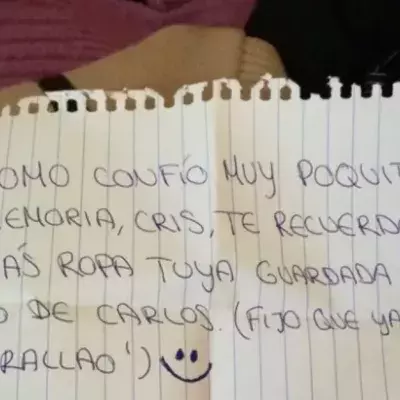 OMO CONFÍO MUY POQUIT
EMORIA, CRIS, TE RECUERD
AS ROPA TUYA GUARDADA
O DE CARLOS. (FIJO QUE YA
RALLAO')